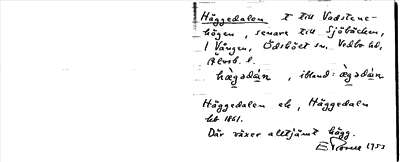 Häggedalen t till Vadstena-
högen, senare till Sjöbacken,
/ Vången, Ödskölt sn. Vedbo hd,
Älvsb. l.
hægədán , ibland: ægədán
Häggedalen ek, Häggedalen
lht 1861.
Där växer alltjämt hägg.
1953